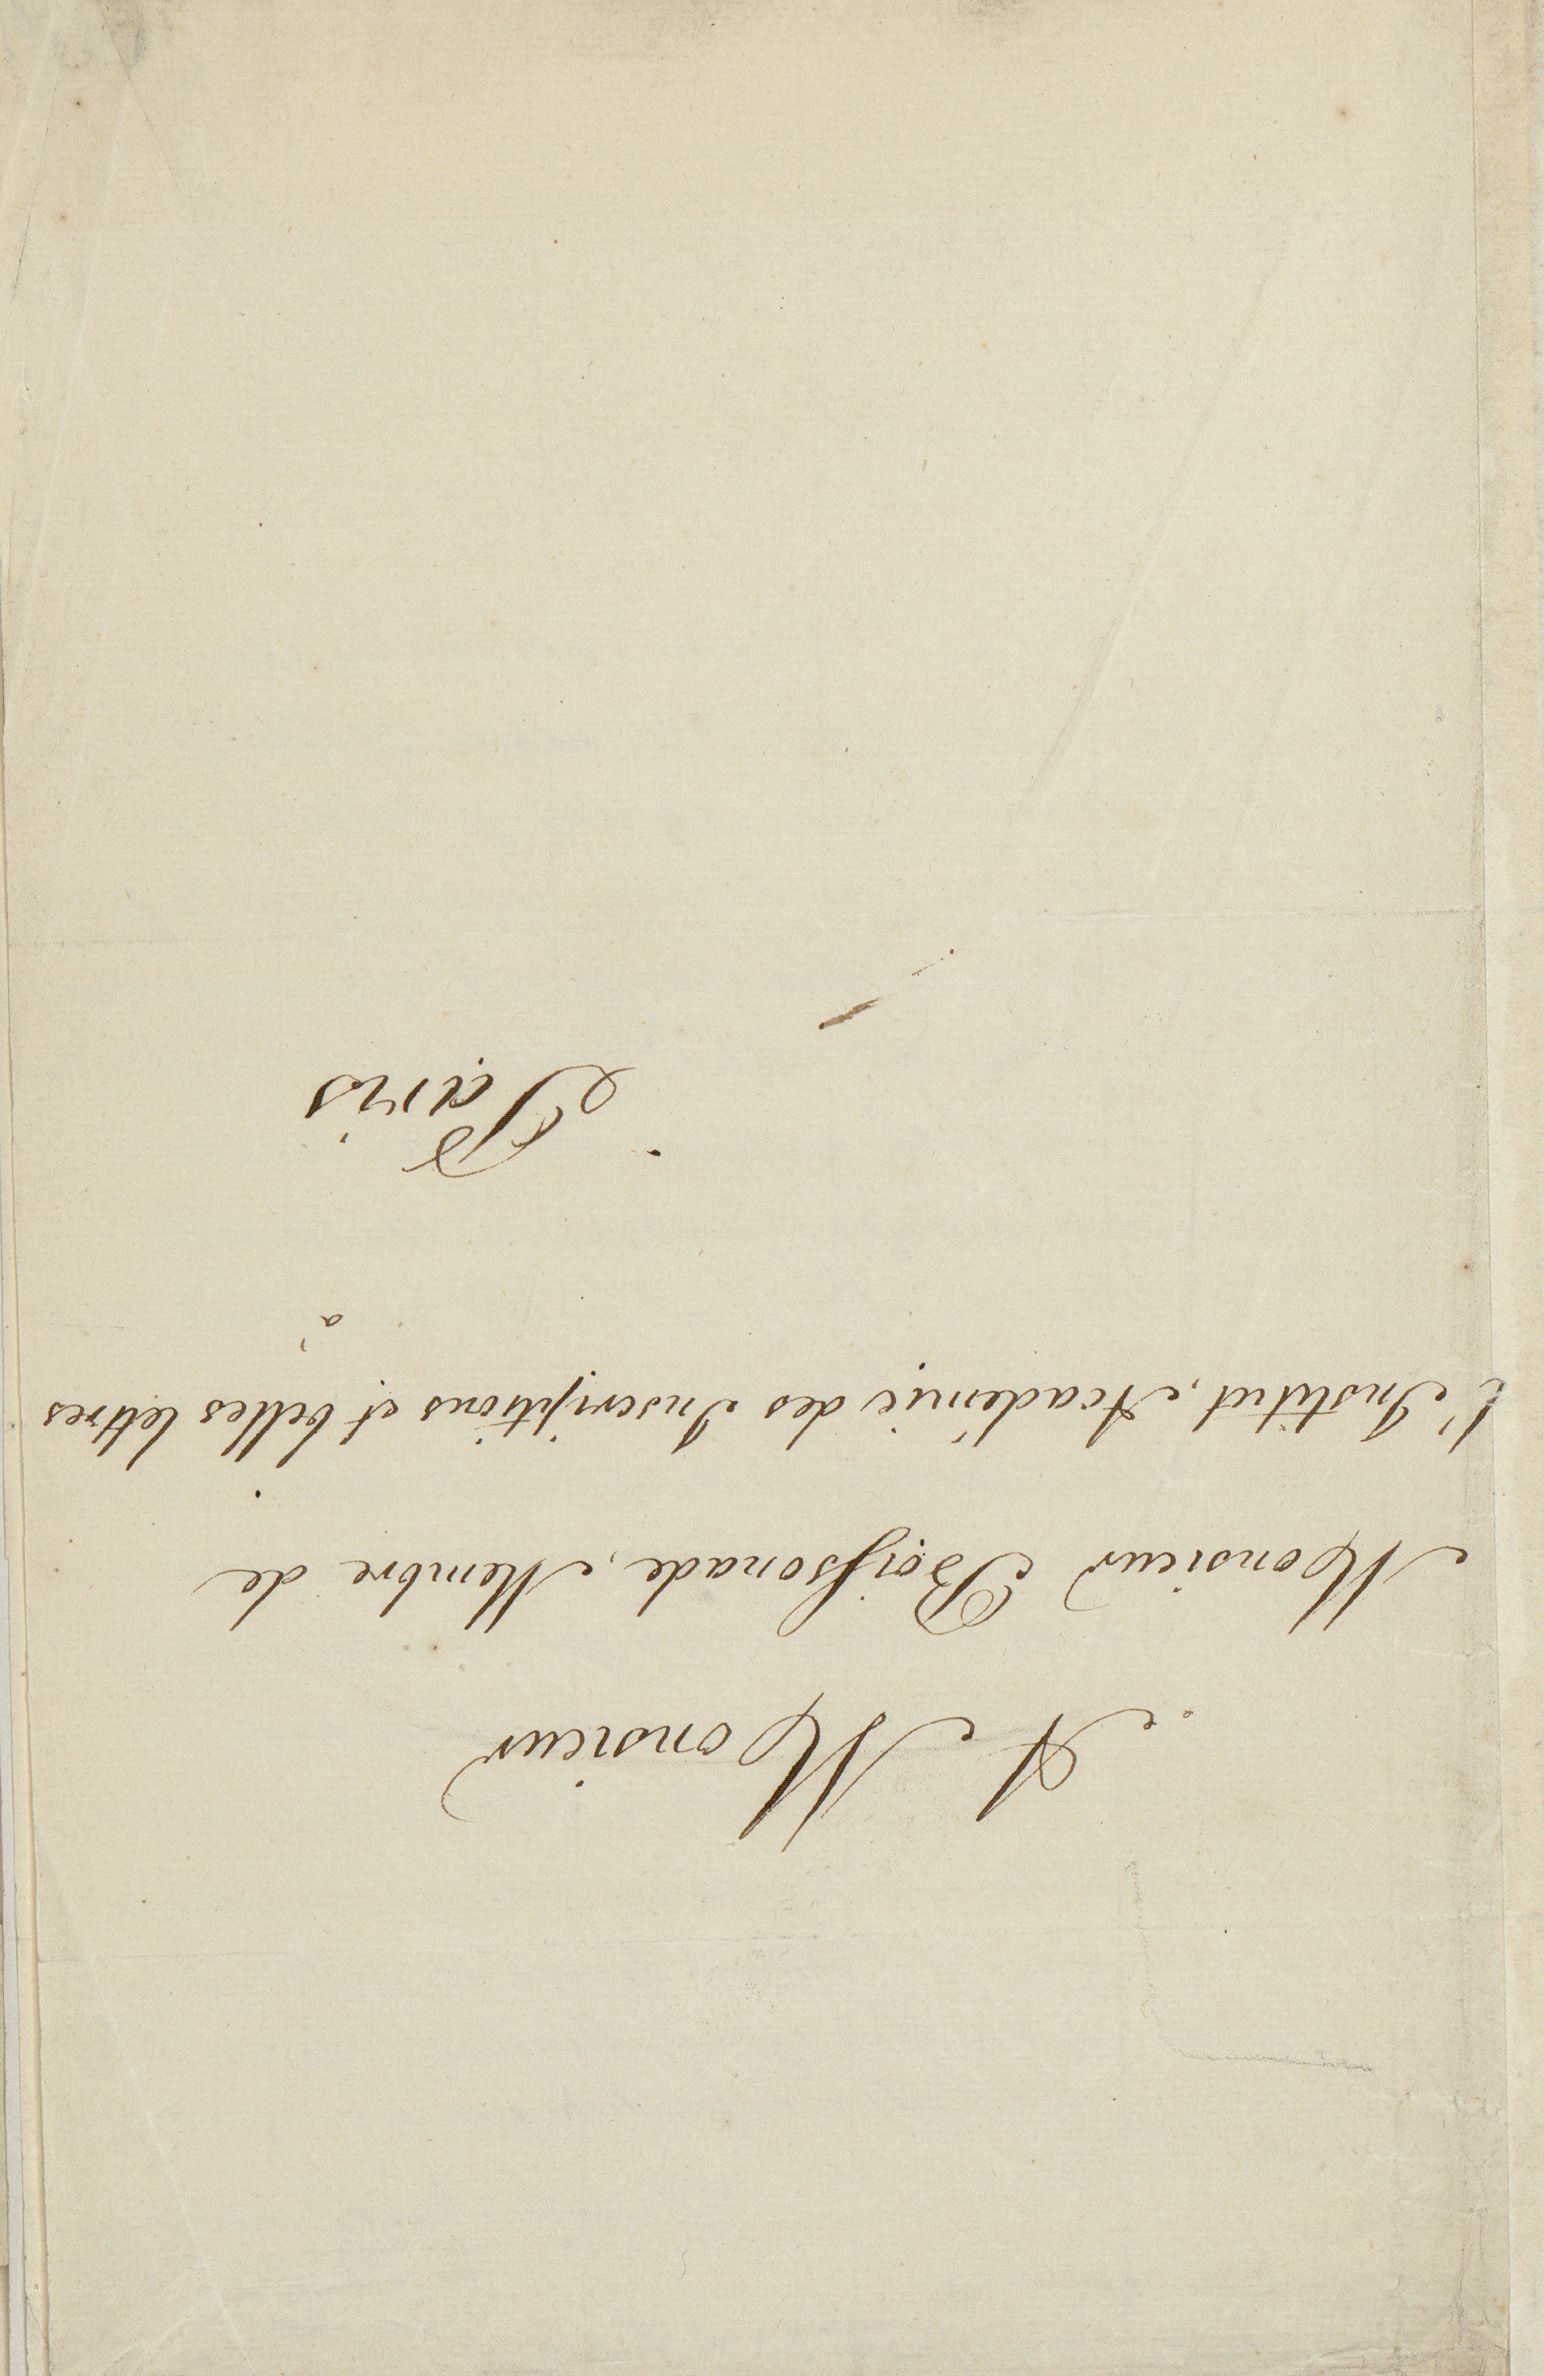 A Monsieur
Monsieur Boissonade, Membre de
l'Institut, Académie des Inscriptions et belles lettres
à
Paris